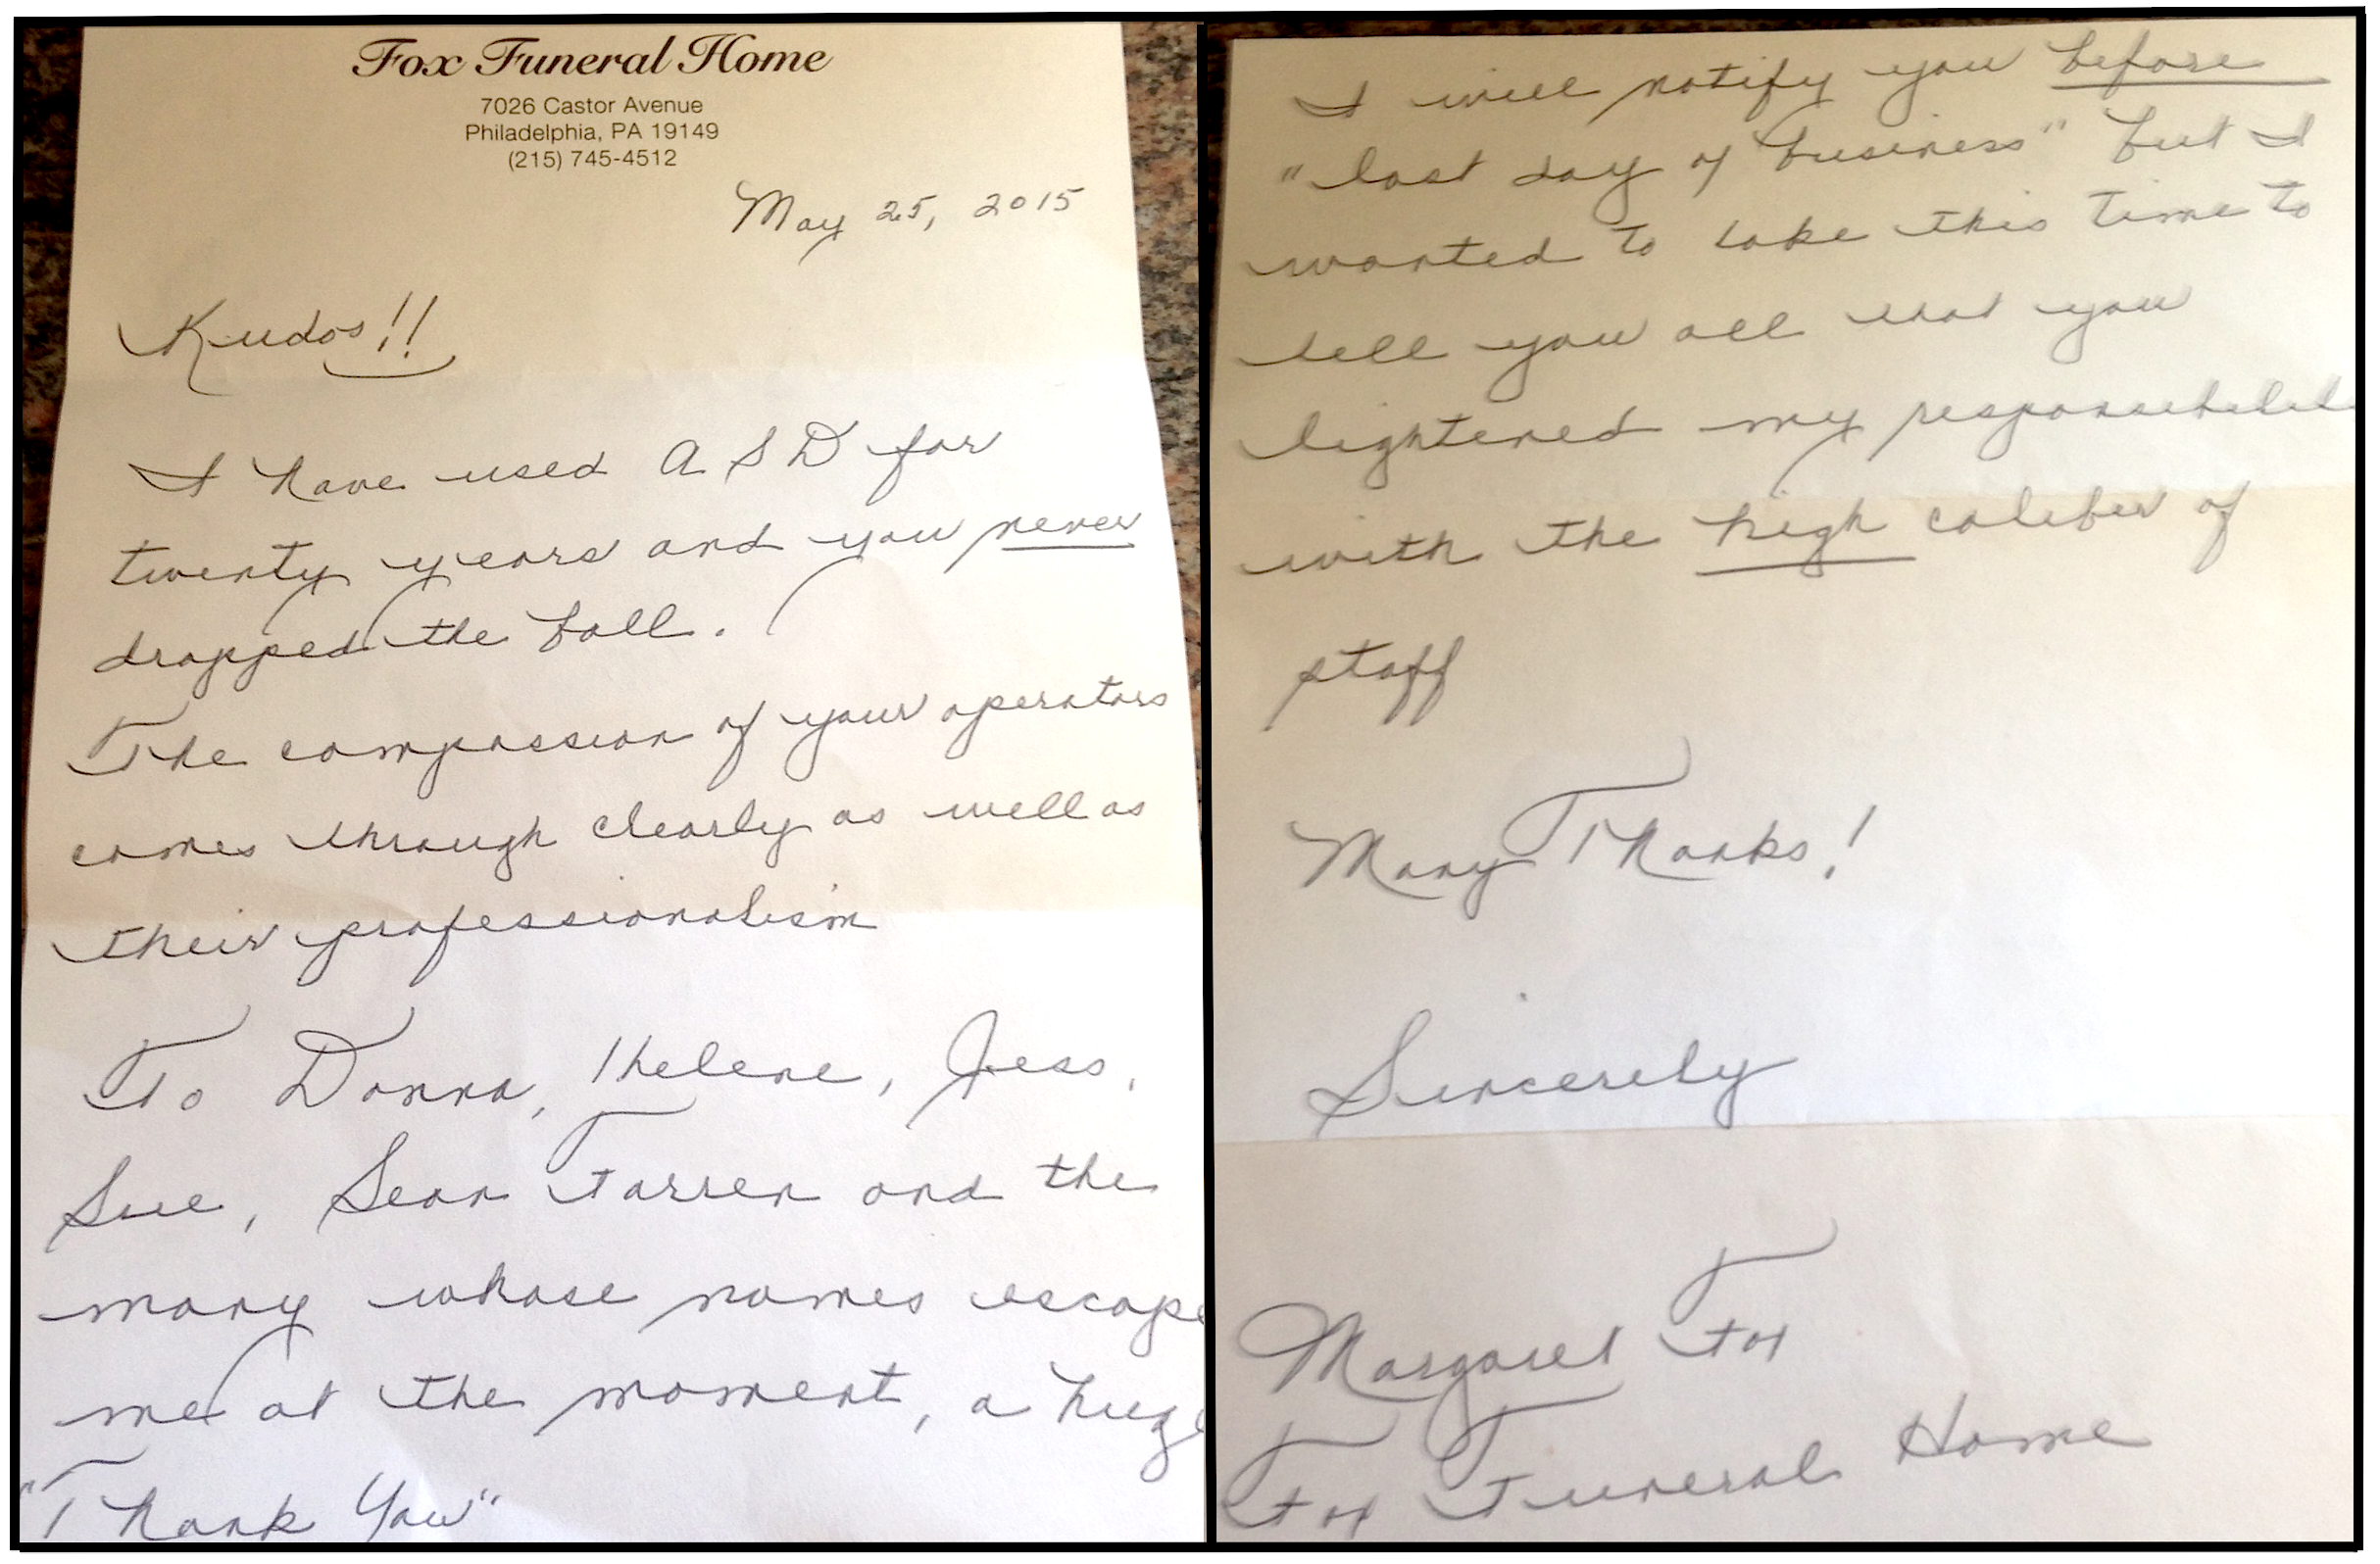 Fox Funeral Home
7026 Castor Avenue
Philadelphia, PA 19149
(215) 745-4512
May 25, 2015
Kudos!!
I have used ASD for
twenty years and you never
dropped the ball.
The compassion of your operators
comes through clearly as well as
their professionalism
To Donna, Thelene, Jess,
Sue, Sean Farren and the
many whose names escape
me at the moment, a huge
"Thank You"
I will notify you before
"last day of business" but I
wanted to take this time to
tell you all that you
lightened my responsibilit
with the high caliber of
staff
Many Thanks!
Sincerely
Margaret Fox
Fox Funeral Home